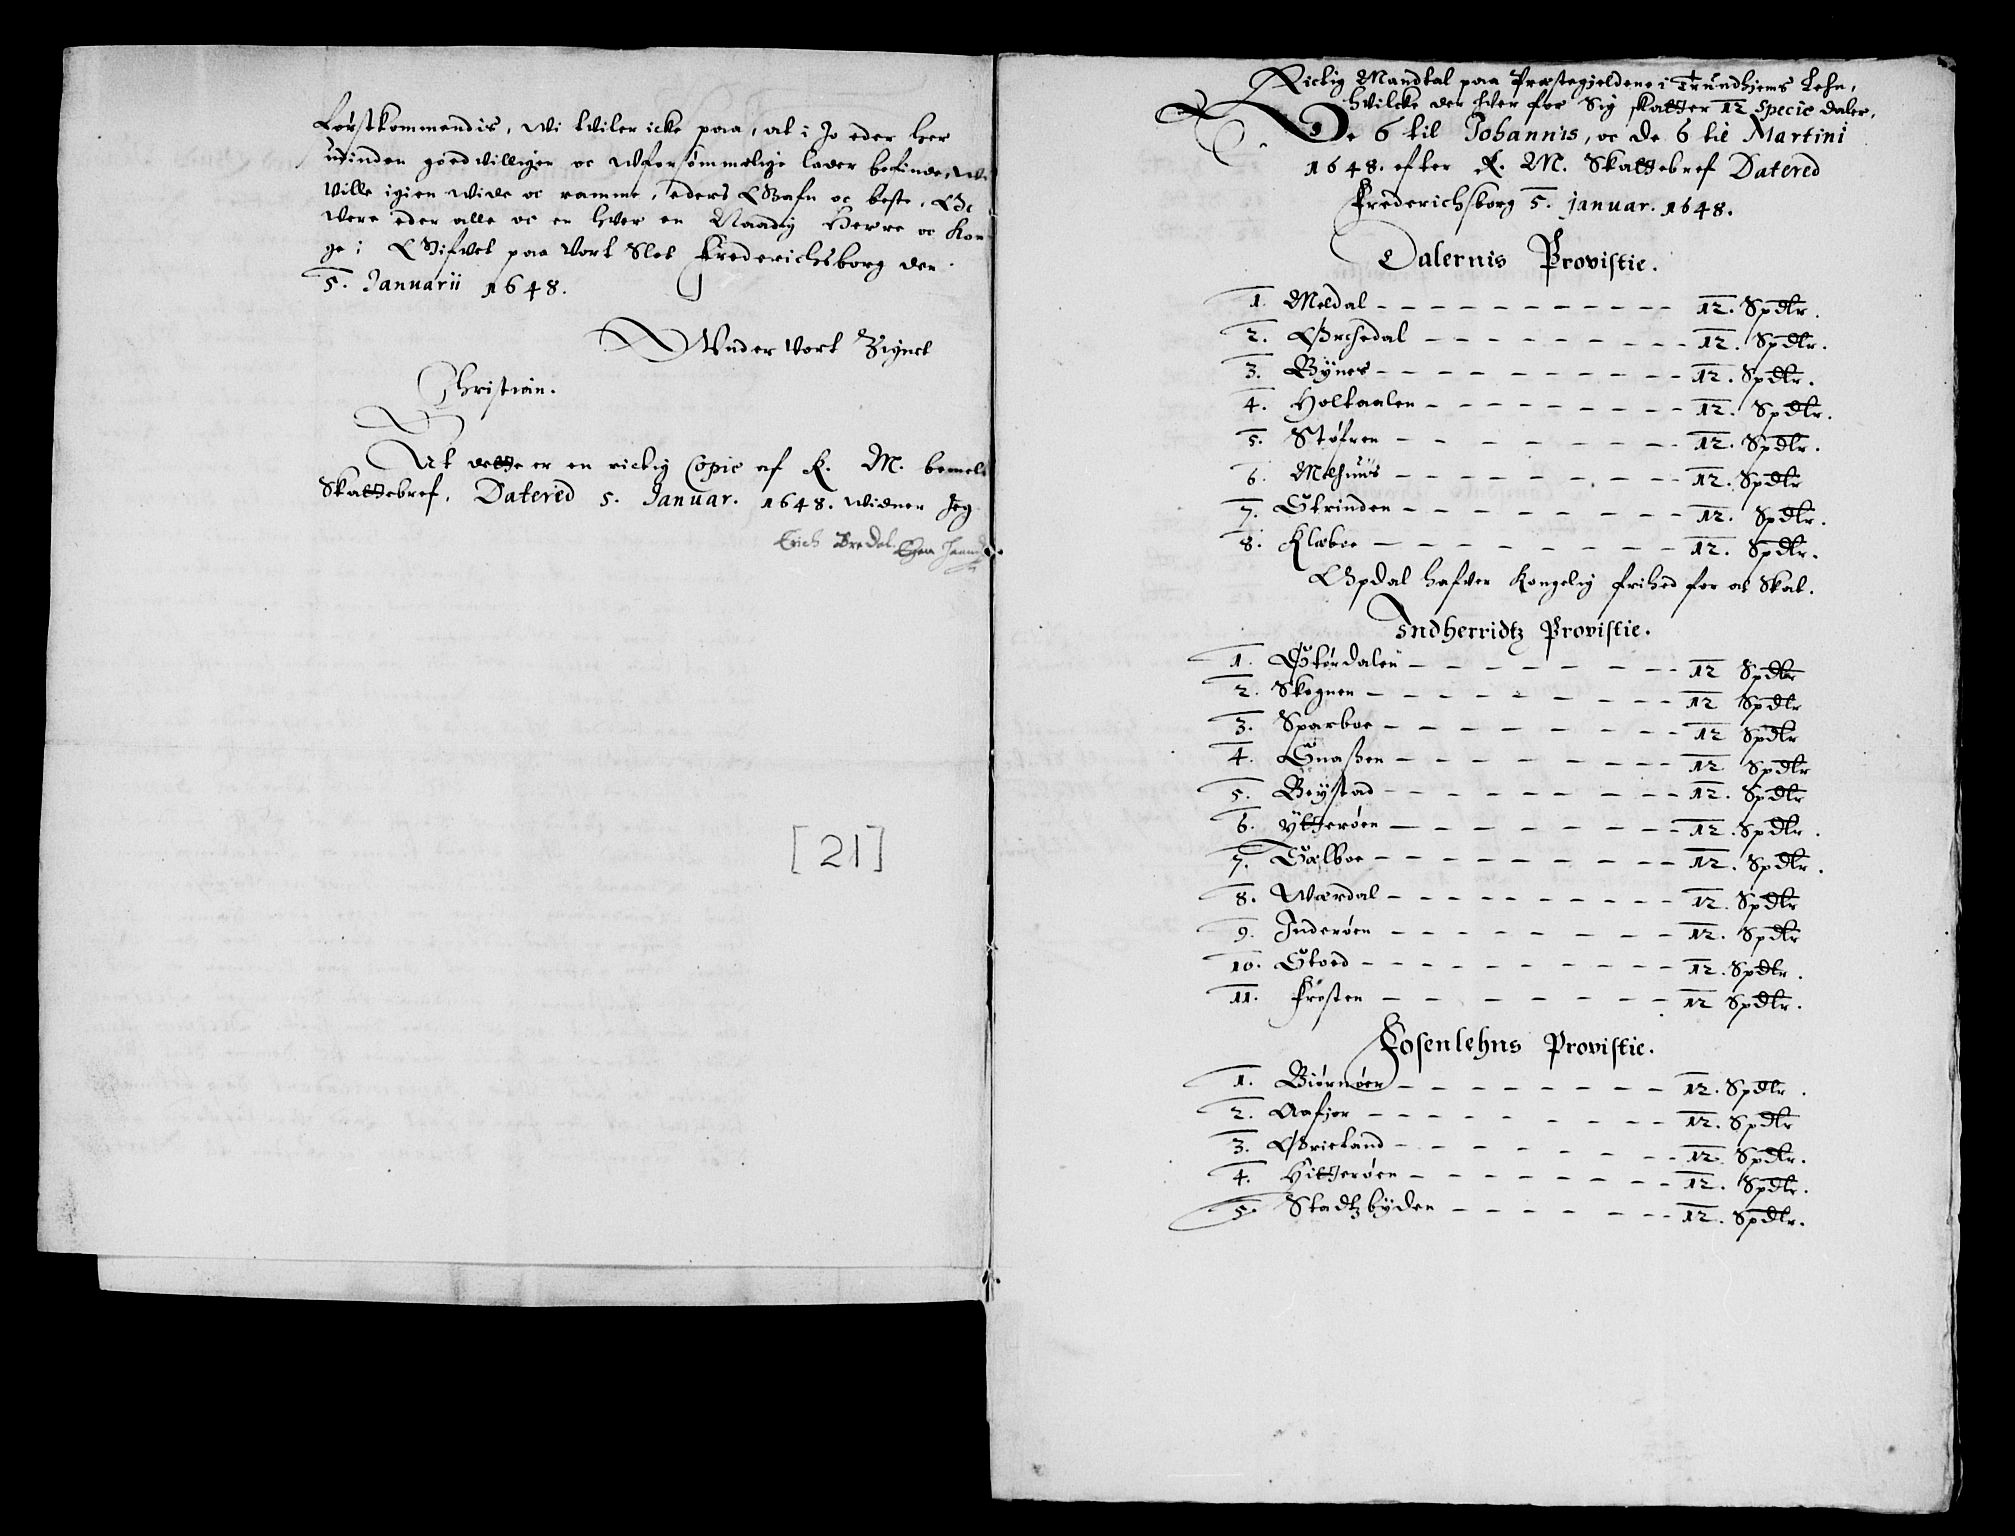 Førstkommendis, Wi twiler icke paa, at i Jo eder her
udinden goedwilligen oc Wforsømmelige lader befinde, Wi
Wille igien Wide oc ramme, eders Gafn oc beste, Oc
Were eder alle oc en hver en Naadig Herre oc Kon-
ge; Gifvet paa Vort Slot Frederichsborg den
5. Januarii 1648.
Wnder Vort Zignet
Christian.
At dette er en rictig Copie af K. M. bemelt
Skattebref, Datered 5. Januar. 1648. widner Jeg
Erich Bredal. Egen haand
[21]
Rictig Mandtal paa Præstegieldene i Trundhjems Lehn,
hvilcke der hver for Sig skatter 12 Specie daler,
De 6 til Johannis, oc de 6 til Martini
1648. efter K. M. Skattebref Datered
Frederichsborg 5. januar. 1648.
Dalernis Provistie.
1. Meldal - - - 12. Spdlr.
2. Orchedal - - - 12. Spdlr.
3. Bÿnes - - - 12. Spdlr.
4. Holtaalen - - - 12. Spdlr.
5. Støfren - - - 12. Spdlr.
6. Melhuus - - - 12. Spdlr
7. Strinden - - - 12. Spdlr.
8. Klæboe - - - 12. Spdlr.
Opdal hafver Kongelig frihed for at Skat.
Indherridtz Provistie.
1. Størdalen - - - 12 Spdlr
2. Skognen - - - 12 Spdlr
3. Sparboe - - - 12 Spdlr
4. Snaßen - - - 12 Spdlr
5. Beÿstad - - - 12. Spdlr
6. Ytterøen - - - 12. Spdlr.
7. Sælboe - - - 12. Spdlr.
8. Wærdal - - - 12. Spdlr
9. Inderøen - - - 12. Spdlr
10. Stoed - - - 12. Spdlr.
11. Frosten - - - 12 Spdlr.
Fosenlehns Provistie.
1. Biørnøer - - - 12. Spdlr.
2. Aafjor - - - 12. Spdlr
3. Ørieland - - - 12. Spdlr.
4. Hitterøen - - - 12. Spdlr.
5. Stadtzbÿden - - - 12. Spdlr.